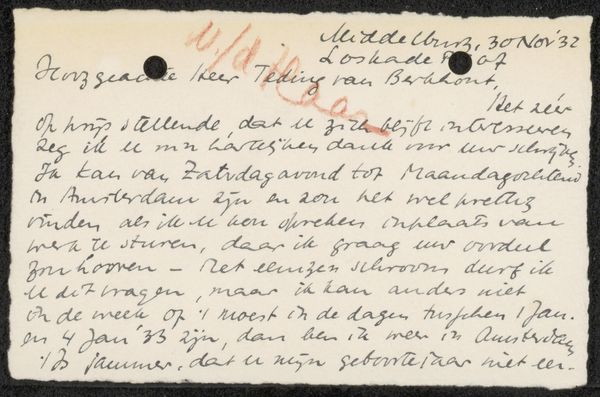 Middelburg, 30 Nov '32
Loskade
v/d Haar
Hooggeachte Heer Teding van Berkhout,
Het zéér
op prijs stellende, dat u zich blijft interesseren
zeg ik u m'n hartelijken dank voor uw schrijven.
Ik kan van Zaterdagavond tot Maandagochtend
in Amsterdam zijn en zou het wel prettig
vinden als ik u kon spreken inplaats van
werk te sturen, daar ik graag uw oordeel
zou hooren – Met eenigen schroom durf ik
u dit vragen, maar ik kan anders niet
in de week of 't moest in de dagen tusschen 1 Jan.
en 4 Jan '33 zijn, dan ben ik weer in Amsterdam
't Is jammer, dat u mijn geboortejaar niet eer-